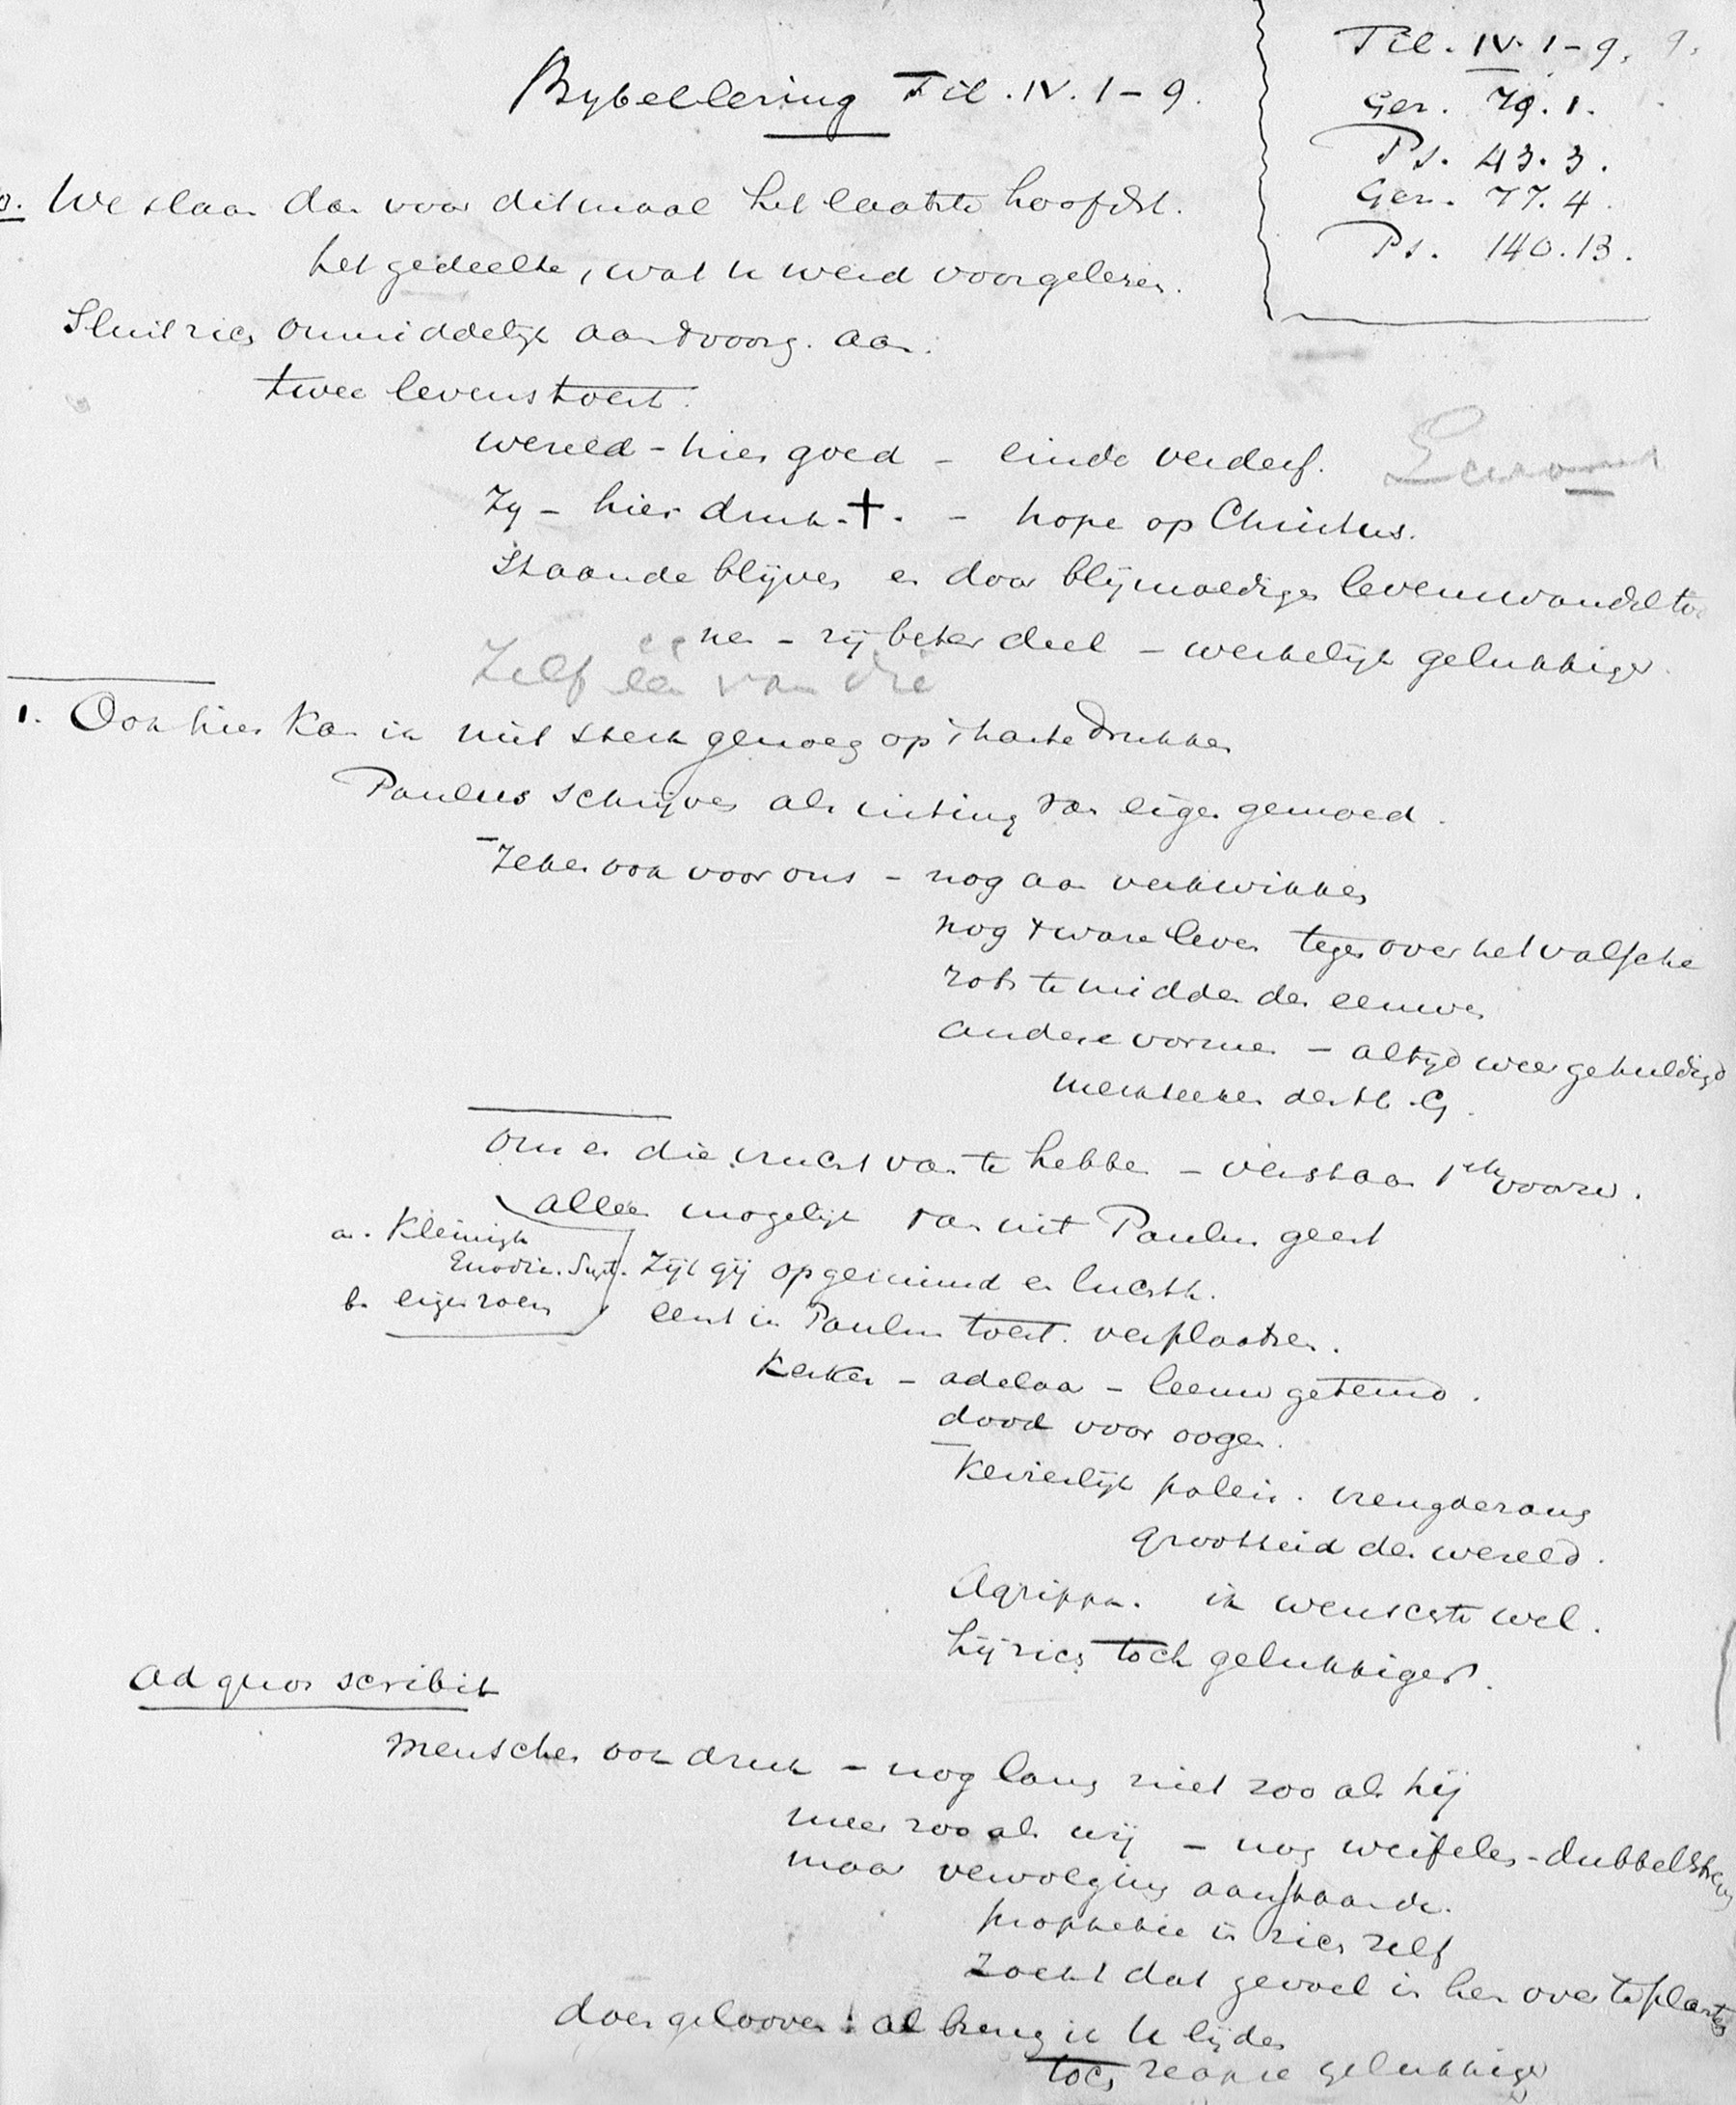 Bybellezing Fil. IV. 1-9.
Fil. IV. 1-9. 9.
Gez. 79. 1.
Ps. 43. 3.
Gez. 77. 4.
Ps. 140. 13.
o. We slaan dan voor ditmaal het laatste hoofdst.
het gedeelte, wat U werd voorgelezen.
Sluit zich onmiddelijk aan 't voorg. aan.
twee levenstoest.
wereld - hier goed - einde verderf.
Zy - hier druk - † . - hope op Christus.
Staande blijven en door blijmoedigen levenswandel to
nen - zij beter deel - werkelijk gelukkiger.
Zelf één van die
1. Ook hier kan ik niet sterk genoeg op 't harte drukken
Paulus schrijven als uiting van eigen gemoed.
Zeker ook voor ons - nog aan verkwikken
nog 't ware leven tegenover het valsche
rots te midden der eeuwen
andere vormen - altijd weer gehuldigd
merkteeken der H. G.
Om er die vrucht van te hebben - verstaan 1ste voorw.
alleen mogelijk van uit Paulus geest
a. Kleinigh
Euodia. Synt.
b. eigen roem
Zijt gij opgeruimd en luchth.
eerst in Paulus toest. verplaatsen.
Kerker - adelaar - leeuw getemd.
dood voor oogen.
Keizerlijk paleis. vreugdezang
grootheid der wereld.
Agrippa. ik wenschte wel.
hij zich toch gelukkiger.
Ad quos scribit
Menschen ook druk - nog lang niet zoo als hij
meer zoo als wij - nog weifelen - dubbel
maar vervolging aanstaande.
prophetie in zich zelf
Zocht dat gevoel in hen over te planten
doen gelooven! al breng ik U lijden
toch gelukkiger